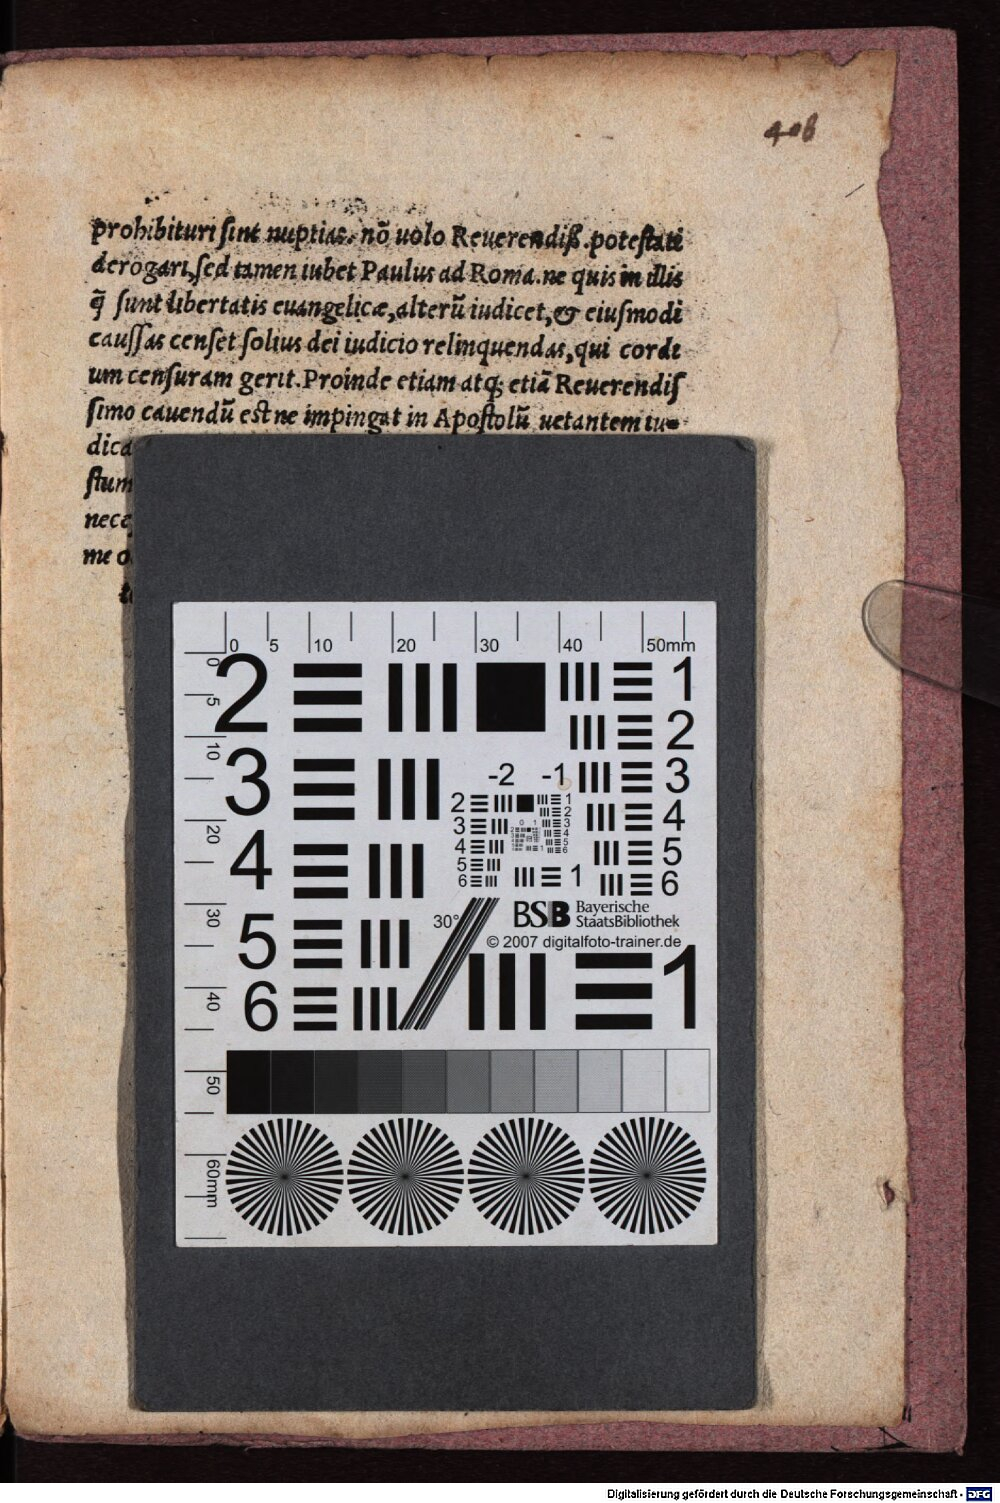 408
prohibituri sint nuptias. nō uolo Reuerendiß. potestati
derogari, sed tamen iubet Paulus ad Roma. ne quis in illis
q̄ sunt libertatis euangelicæ, alterū iudicet, & eiusmodi
caussas censet solius dei iudicio relinquendas, qui cordi
um censuram gerit. Proinde etiam atq; etiā Reuerendis
simo cauendū est ne impingat in Apostolū uetantem iu-
dica
stum
nece
me o
0 5 10 20 30 40 50mm
0 5 10 20 30 40 50 60mm
2 1
2
3 -2 -1 3
4 4
5
6
5 30° BSB Bayerische
StaatsBibliothek
© 2007 digitalfoto-trainer.de
6 1
2 1
2
3 3
4 4
5 5
6 6
1
Digitalisierung gefördert durch die Deutsche Forschungsgemeinschaft - DFG